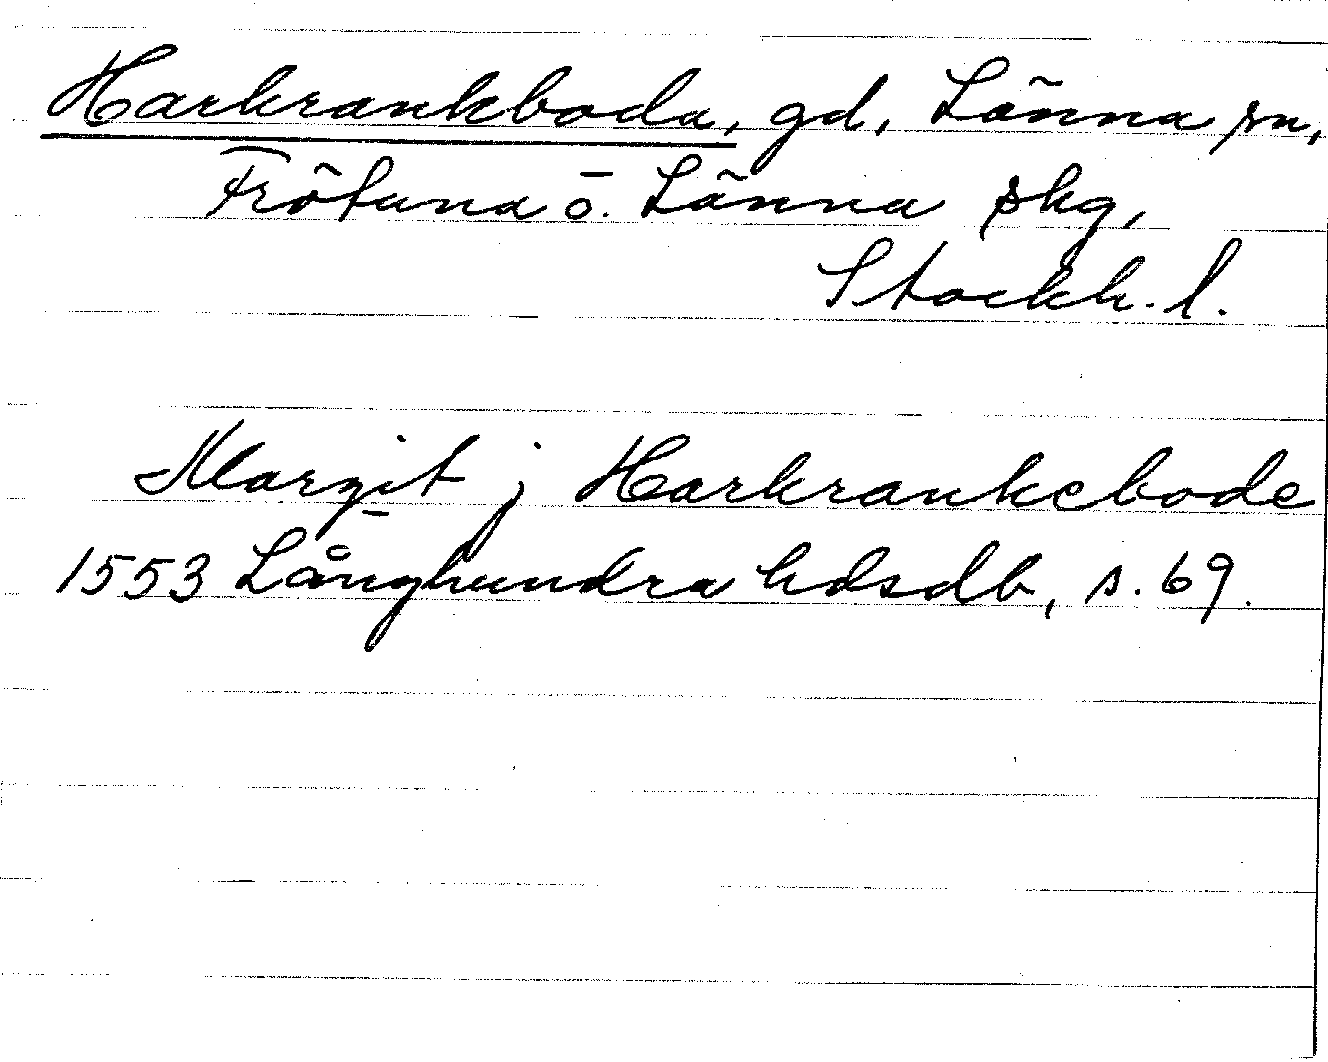 Harkrankboda, gd, Länna sn,
Frötuna o. Länna skg,
Stockh. l.
Margit j Harkrankebode
1553 Långhundra hdsdb, s. 69.